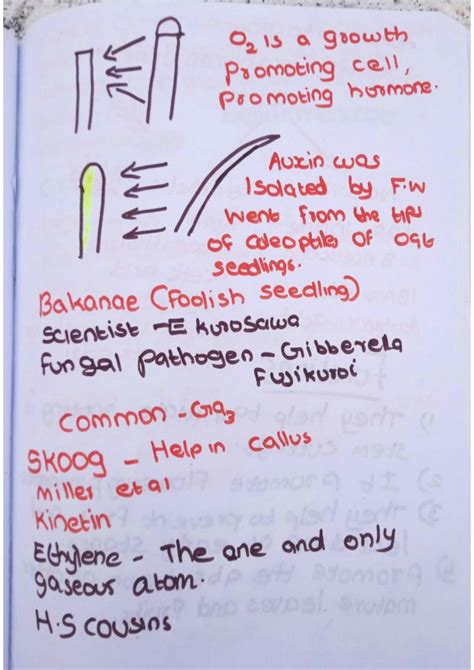 O2 is a growth
promoting cell,
promoting hormone.
Auxin was
Isolated by F.W
Went from the tips
of coleoptiles of oat
seedlings.
Bakanae (Foolish Seedling)
Scientist - E Kurosawa
Fungal pathogen - Gibberela
Fujikuroi
Common - GA3
SKOOG - Help in callus
Miller et al
Kinetin
Ethylene - The one and only
gaseous atom.
H.S COUSINS